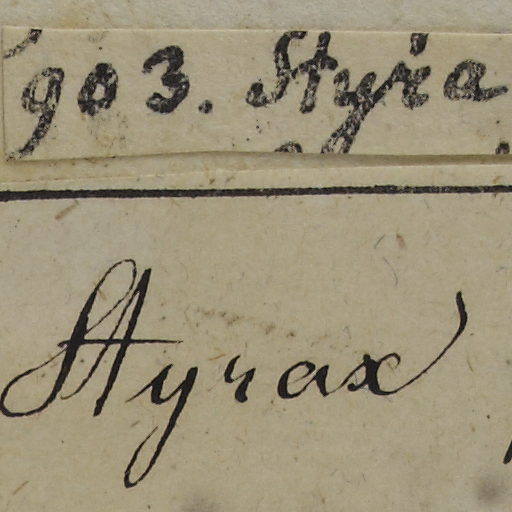 903. Styra
Styrax